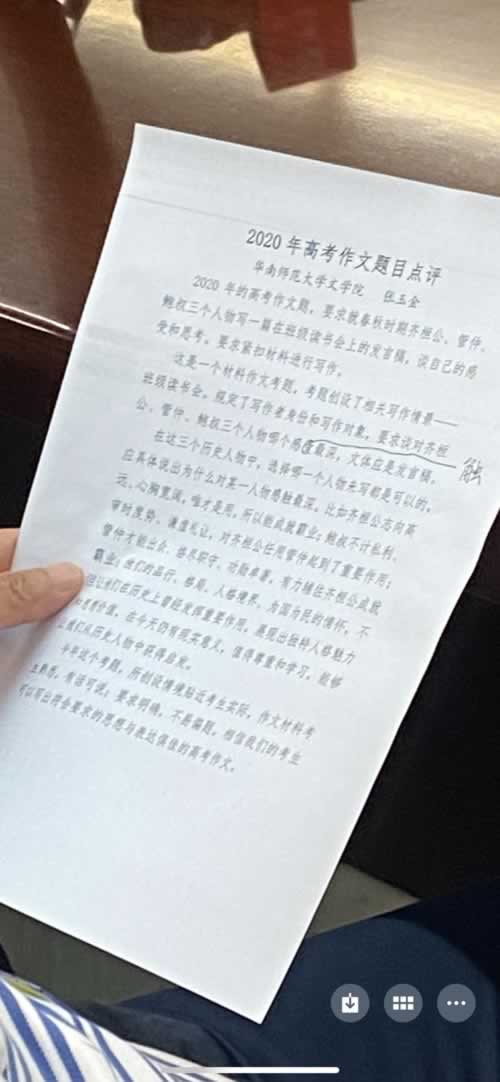 2020 年高考作文题目点评
华南师范大学文学院 张玉金
2020 年的高考作文题，要求就春秋时期齐桓公、管仲、
鲍叔三个人物写一篇在班级读书会上的发言稿，谈自己的感
受和思考。要求紧扣材料进行写作。
这是一个材料作文考题，考题创设了相关写作情景——
班级读书会，规定了写作者身份和写作对象，要求谈对齐桓
公、管仲、鲍叔三个人物哪个感受最深，文体应是发言稿。
触
在这三个历史人物中，选择哪一个人物来写都是可以的，
应具体说出为什么对某一人物感触最深。比如齐桓公志向高
远、心胸宽广，唯才是用，所以能成就霸业；鲍叔不计私利、
审时度势、谦虚礼让，对齐桓公任用管仲起到了重要作用；
管仲才能出众、恪尽职守、功勋卓著，有力辅佐齐桓公成就
霸业；他们的品行、格局、人格境界、为国为民的情怀，不
但让他们在历史上曾经发挥重要作用，展现出独特人格魅力
和思想价值，在今天仍有现实意义，值得尊重和学习，能够
让我们从历史人物中获得启发。
今年这个考题，所创设情境贴近考生实际，作文材料考
生熟悉，有话可说；要求明确，不是偏题，相信我们的考生
可以写出符合要求的思想与表达俱佳的高考作文。